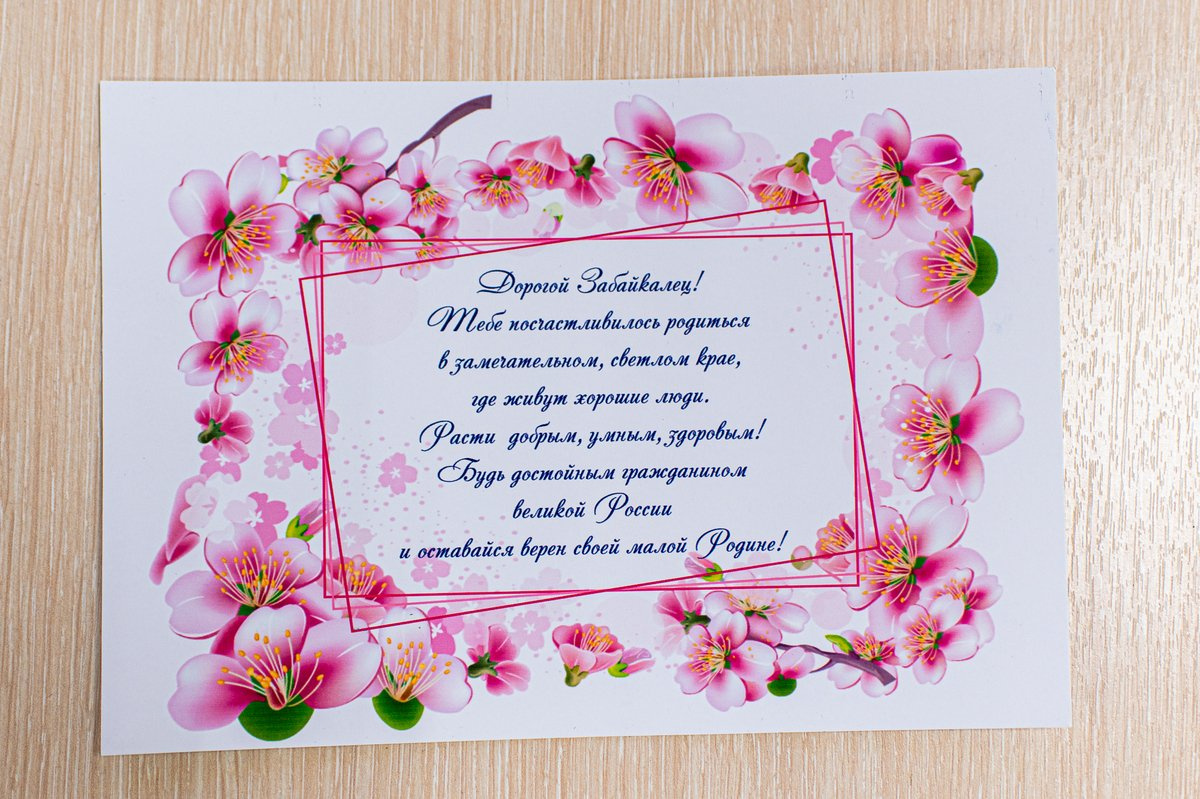 Дорогой Забайкалец!
Тебе посчастливилось родиться
в замечательном, светлом крае,
где живут хорошие люди.
Расти добрым, умным, здоровым!
Будь достойным гражданином
великой России
и оставайся верен своей малой Родине!